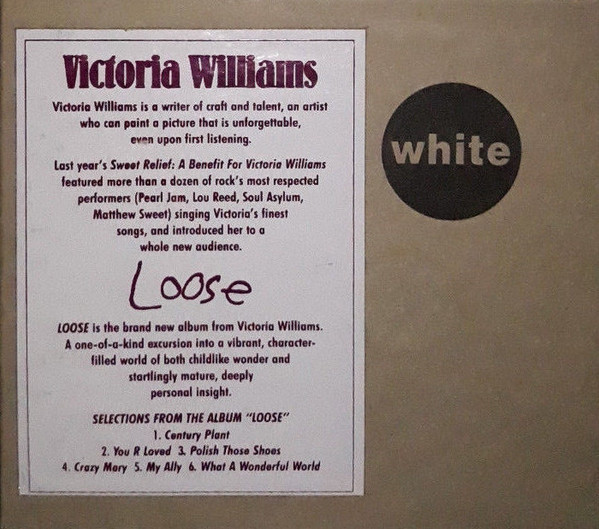 Victoria Williams
Victoria Williams is a writer of craft and talent, an artist
who can paint a picture that is unforgettable,
even upon first listening.
Last year's Sweet Relief: A Benefit For Victoria Williams
featured more than a dozen of rock's most respected
performers (Pearl Jam, Lou Reed, Soul Asylum,
Matthew Sweet) singing Victoria's finest
songs, and introduced her to a
whole new audience.
Loose
LOOSE is the brand new album from Victoria Williams.
A one-of-a-kind excursion into a vibrant, character-
filled world of both childlike wonder and
startlingly mature, deeply
personal insight.
SELECTIONS FROM THE ALBUM "LOOSE"
1. Century Plant
2. You R Loved 3. Polish Those Shoes
4. Crazy Mary 5. My Ally 6. What A Wonderful World
white